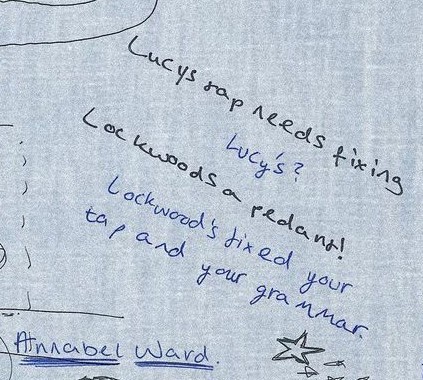 Lucys tap needs fixing
Lucy's?
Lockwoods a pedant!
Lockwood's fixed your
tap and your grammar.
Annabel Ward.